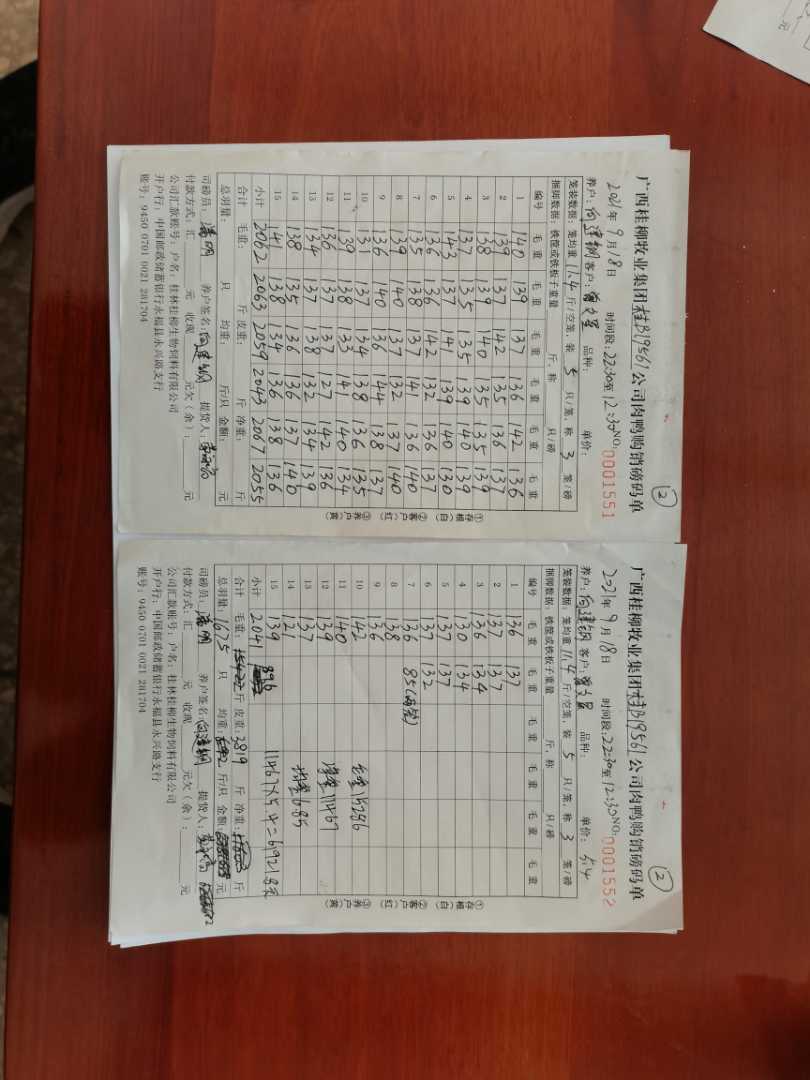 ②
广西桂柳牧业集团桂B19561公司肉鸭购销磅码单
2021年9月18日 时间段:22:30至12:30 NO:0001551
养户:向建钢 客户: 品种: 单价:
笼装数据:笼均重11.4斤/空笼,装5只/笼,称3笼/磅
捆脚数据:铁筐或铁板子重量 斤,称 只/磅
编号 毛重 毛重 毛重 毛重 毛重 毛重
1 140 139 137 136 142 136
2 139 137 142 135 136 137
3 138 139 140 135 135 139
4 137 135 135 139 140 139
5 143 137 141 139 140 130
6 136 136 142 132 136 137
7 135 138 137 141 136 140
8 139 140 137 132 137 140
9 136 140 136 144 138 137
10 131 137 134 138 136 135
11 139 138 133 141 140 134
12 136 137 137 127 142 136
13 134 137 138 132 134 139
14 138 135 136 136 137 140
15 141 138 134 136 138 136
小计 2062 2063 2059 2043 2067 2055
合计 毛重: 斤 皮重: 斤 净重: 斤
总羽量: 只 均重: 斤/只 金额: 元
司磅员: 养户签名:向建钢 提货人:
付款方式:汇 元 收现 元欠(余): 元
公司汇款账号:户名:桂林桂柳生物饲料有限公司
开户行:中国邮政储蓄银行永福县永兴路支行
账号:9450 0701 0021 281704
①存根(白) ②客户(红) ③养户(黄)
②
广西桂柳牧业集团桂B19561公司肉鸭购销磅码单
2021年9月18日 时间段:22:30至12:30 NO:0001552
养户:向建钢 客户: 品种: 单价:5.4
笼装数据:笼均重11.4斤/空笼,装5只/笼,称3笼/磅
捆脚数据:铁筐或铁板子重量 斤,称 只/磅
编号 毛重 毛重 毛重 毛重 毛重 毛重
1 136 137
2 137 137
3 136 134
4 130 134
5 137 137
6 137 132
7 136 85(两笼)
8 138
9 136
10 142 毛重15286
11 140
12 139 净重11467
13 137
14 121 均重6.85
15 139
小计 2041 896 11467×5.4=61921.8元
合计 毛重: 斤 皮重:3819斤 净重: 斤
总羽量:1675只 均重: 斤/只 金额: 元
司磅员: 养户签名:向建钢 提货人:
付款方式:汇 元 收现 元欠(余): 元
公司汇款账号:户名:桂林桂柳生物饲料有限公司
开户行:中国邮政储蓄银行永福县永兴路支行
账号:9450 0701 0021 281704
①存根(白) ②客户(红) ③养户(黄)